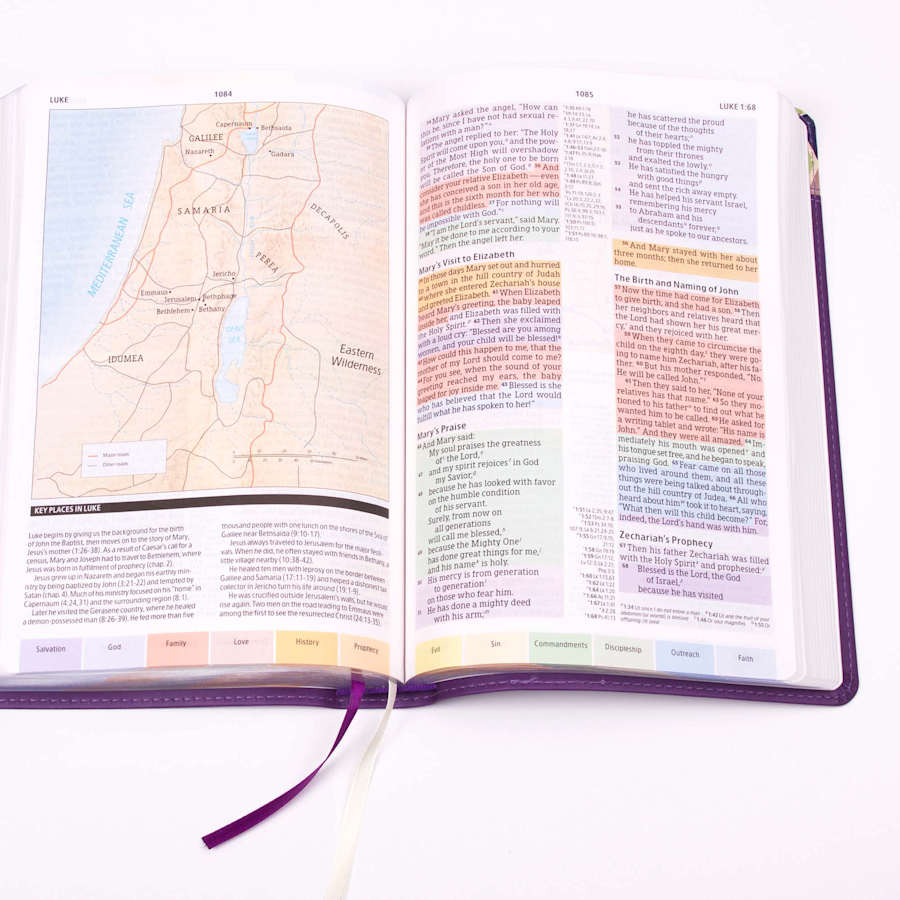 LUKE
1084
Capernaum
Bethsaida
GALILEE
Nazareth
Gadara
MEDITERRANEAN SEA
SAMARIA
DECAPOLIS
PEREA
Jericho
Emmaus
Jerusalem
Bethphage
Bethlehem
Bethany
DEAD SEA
IDUMEA
Eastern
Wilderness
Major roads
Other roads
KEY PLACES IN LUKE
Luke begins by giving us the background for the birth
of John the Baptist, then moves on to the story of Mary,
Jesus's mother (1:26-38). As a result of Caesar's call for a
census, Mary and Joseph had to travel to Bethlehem, where
Jesus was born in fulfillment of prophecy (chap. 2).
Jesus grew up in Nazareth and began his earthly min-
istry by being baptized by John (3:21-22) and tempted by
Satan (chap. 4). Much of his ministry focused on his "home" in
Capernaum (4:24,31) and the surrounding region (8:1).
Later he visited the Gerasene country, where he healed
a demon-possessed man (8:26-39). He fed more than five
thousand people with one lunch on the shores of the Sea of
Galilee near Bethsaida (9:10-17).
Jesus always traveled to Jerusalem for the major festi-
vals. When he did, he often stayed with friends in Bethany, a
little village nearby (10:38-42).
He healed ten men with leprosy on the border between
Galilee and Samaria (17:11-19) and helped a dishonest tax
collector in Jericho turn his life around (19:1-9).
He was crucified outside Jerusalem's walls, but he would
rise again. Two men on the road leading to Emmaus were
among the first to see the resurrected Christ (24:13-35).
Salvation
God
Family
Love
History
Prophecy
1085
LUKE 1:68
34 Mary asked the angel, "How can
this be, since I have not had sexual re-
lations with a man?"
The angel replied to her: "The Holy
Spirit will come upon you, and the pow-
er of the Most High will overshadow
you. Therefore, the holy one to be born
will be called the Son of God. 36 And
consider your relative Elizabeth — even
she has conceived a son in her old age,
and this is the sixth month for her who
was called childless. 37 For nothing will
be impossible with God."
38 "I am the Lord's servant," said Mary.
"May it be done to me according to your
word." Then the angel left her.
Mary's Visit to Elizabeth
In those days Mary set out and hurried
to a town in the hill country of Judah
40 where she entered Zechariah's house
and greeted Elizabeth. 41 When Elizabeth
heard Mary's greeting, the baby leaped
inside her, and Elizabeth was filled with
the Holy Spirit. 42 Then she exclaimed
with a loud cry: "Blessed are you among
women, and your child will be blessed!
43 How could this happen to me, that the
mother of my Lord should come to me?
44 For you see, when the sound of your
greeting reached my ears, the baby
leaped for joy inside me. 45 Blessed is she
who has believed that the Lord would
fulfill what he has spoken to her!"
Mary's Praise
46 And Mary said:
My soul praises the greatness
of the Lord,
47 and my spirit rejoices in God
my Savior,
48 because he has looked with favor
on the humble condition
of his servant.
Surely, from now on
all generations
will call me blessed,
49 because the Mighty One
has done great things for me,
and his name is holy.
50 His mercy is from generation
to generation
on those who fear him.
51 He has done a mighty deed
with his arm;
he has scattered the proud
because of the thoughts
of their hearts;
52 he has toppled the mighty
from their thrones
and exalted the lowly.
53 He has satisfied the hungry
with good things
and sent the rich away empty.
54 He has helped his servant Israel,
remembering his mercy
55 to Abraham and his
descendants forever,
just as he spoke to our ancestors.
56 And Mary stayed with her about
three months; then she returned to her
home.
The Birth and Naming of John
57 Now the time had come for Elizabeth
to give birth, and she had a son. 58 Then
her neighbors and relatives heard that
the Lord had shown her his great mer-
cy, and they rejoiced with her.
59 When they came to circumcise the
child on the eighth day, they were go-
ing to name him Zechariah, after his fa-
ther. 60 But his mother responded, "No.
He will be called John."
61 Then they said to her, "None of your
relatives has that name." 62 So they mo-
tioned to his father to find out what he
wanted him to be called. 63 He asked for
a writing tablet and wrote: "His name is
John." And they were all amazed. 64 Im-
mediately his mouth was opened and
his tongue set free, and he began to speak,
praising God. 65 Fear came on all those
who lived around them, and all these
things were being talked about through-
out the hill country of Judea. 66 All who
heard about him took it to heart, saying,
"What then will this child become?" For,
indeed, the Lord's hand was with him.
Zechariah's Prophecy
67 Then his father Zechariah was filled
with the Holy Spirit and prophesied:
68 Blessed is the Lord, the God
of Israel,
because he has visited
Evil
Sin
Commandments
Discipleship
Outreach
Faith